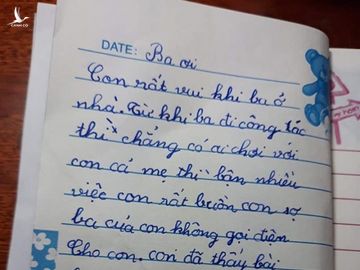 CÁNH CÒ
DATE: Ba ơi
Con rất vui khi ba ở
nhà. Từ khi ba đi công tác
thì chẳng có ai chơi với
con cả mẹ thì bận nhiều
việc con rất buồn con sợ
ba của con không gọi điện
Cho con. con đã thấy bài